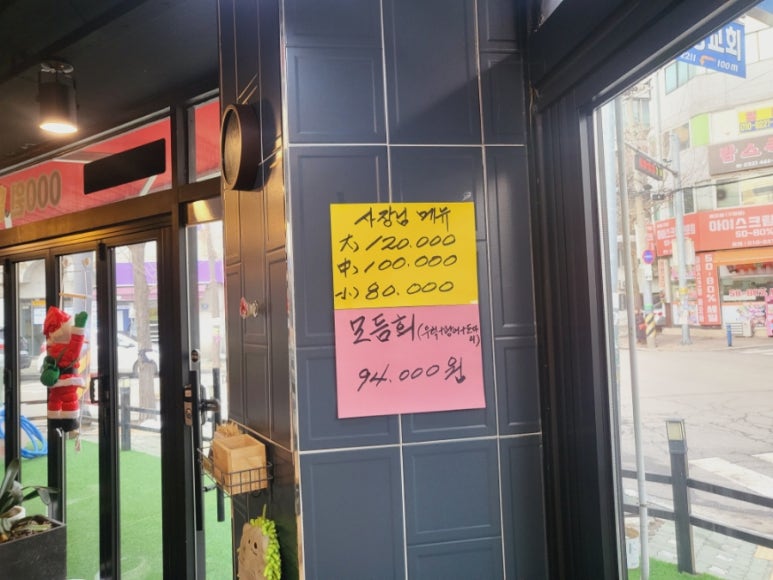 사장님 메뉴
大) 120.000
中) 100.000
小) 80.000
모듬회(우럭+방어+도다
리)
94.000원
000원
교회
100m
아이스크림
50-80%
50-80%